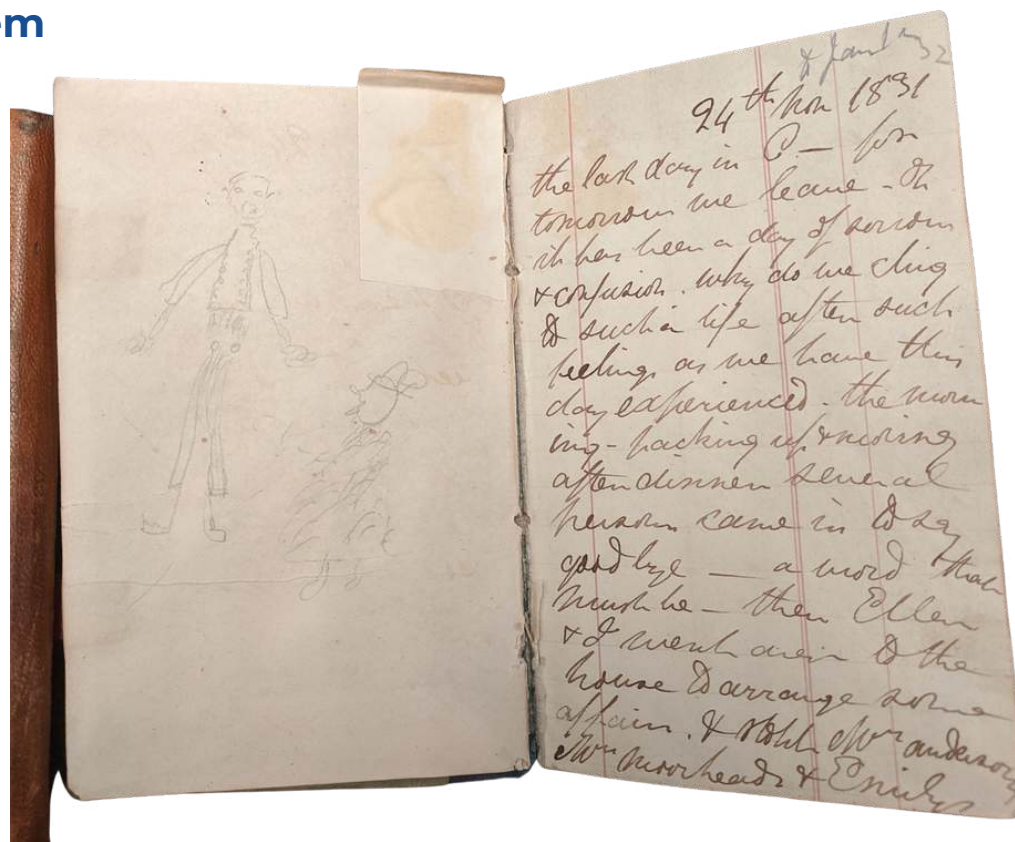 em
24th Nov 1831
the last day in C— for
tomorrow we leave - Oh
it has been a day of sorrow
& confusion. why do we cling
to such a life after such
feelings as we have this
day experienced - the morn
ing - packing up & moving
after dinner several
persons came in to say
good bye — a word that
must be — then Ellen
& I went over to the
house to arrange some
affairs. & Mrs anderson
Mrs Moorheads & Emilys